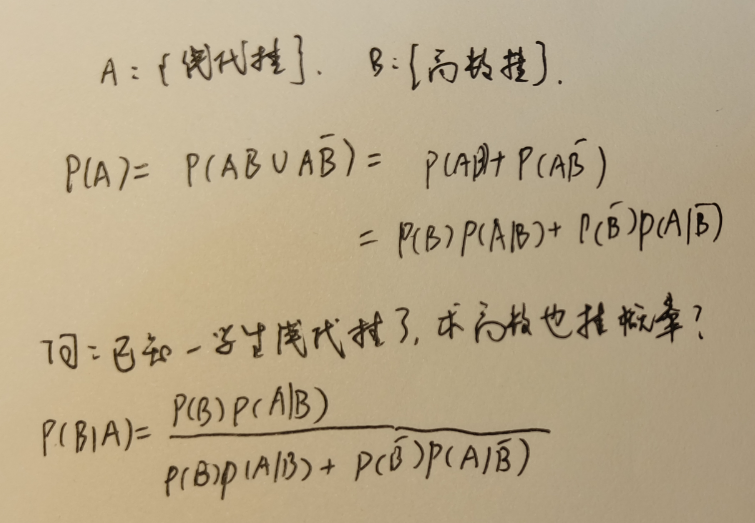 A：{线代挂}. B：{高数挂}.
P(A)= P(AB∪AB̄)= P(AB)+P(AB̄)
= P(B)P(A|B)+P(B̄)P(A|B̄)
问：已知一学生线代挂了，求高数也挂概率？
P(B|A)= P(B)P(A|B)
P(B)P(A|B)+P(B̄)P(A|B̄)